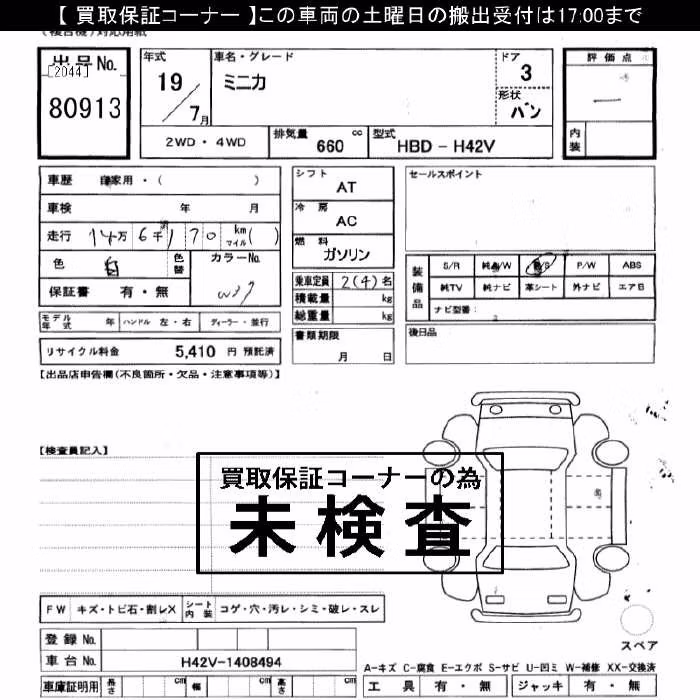 【 買取保証コーナー 】この車両の土曜日の搬出受付は17:00まで
(複合機)対応用紙
出品No.
[2044]
80913
年式
19/7月
車名・グレード
ミニカ
ドア
3
形状
バン
評価点
一
内装
2WD・4WD
排気量 660 cc
型式 HBD-H42V
車歴 自家用・( )
車検 年 月
走行 14万6千170 km マイル( )
色 白 色替 カラーNo. W37
保証書 有・無
モデル年式 年 ハンドル 左・右 ディーラー・並行
リサイクル料金 5,410 円 預託済
シフト
AT
冷房
AC
燃料
ガソリン
乗車定員 2(4)名
積載量 kg
総重量 kg
書類期限
月 日
セールスポイント
装備品
S/R 純A/W P/S P/W ABS
純TV 純ナビ 革シート 外ナビ エアB
ナビ型番:
後日品
【出品店申告欄(不良箇所・欠品・注意事項等)】
【検査員記入】
買取保証コーナーの為
未検査
FW キズ・トビ石・割レX シート内装 コゲ・穴・汚レ・シミ・破レ・スレ
登録No.
車台No. H42V-1408494
車庫証明用 長さ cm 幅 cm 高さ cm
スペア
A-キズ C-腐食 E-エクボ S-サビ U-凹ミ W-補修 XX-交換済
工具 有・無 ジャッキ 有・無